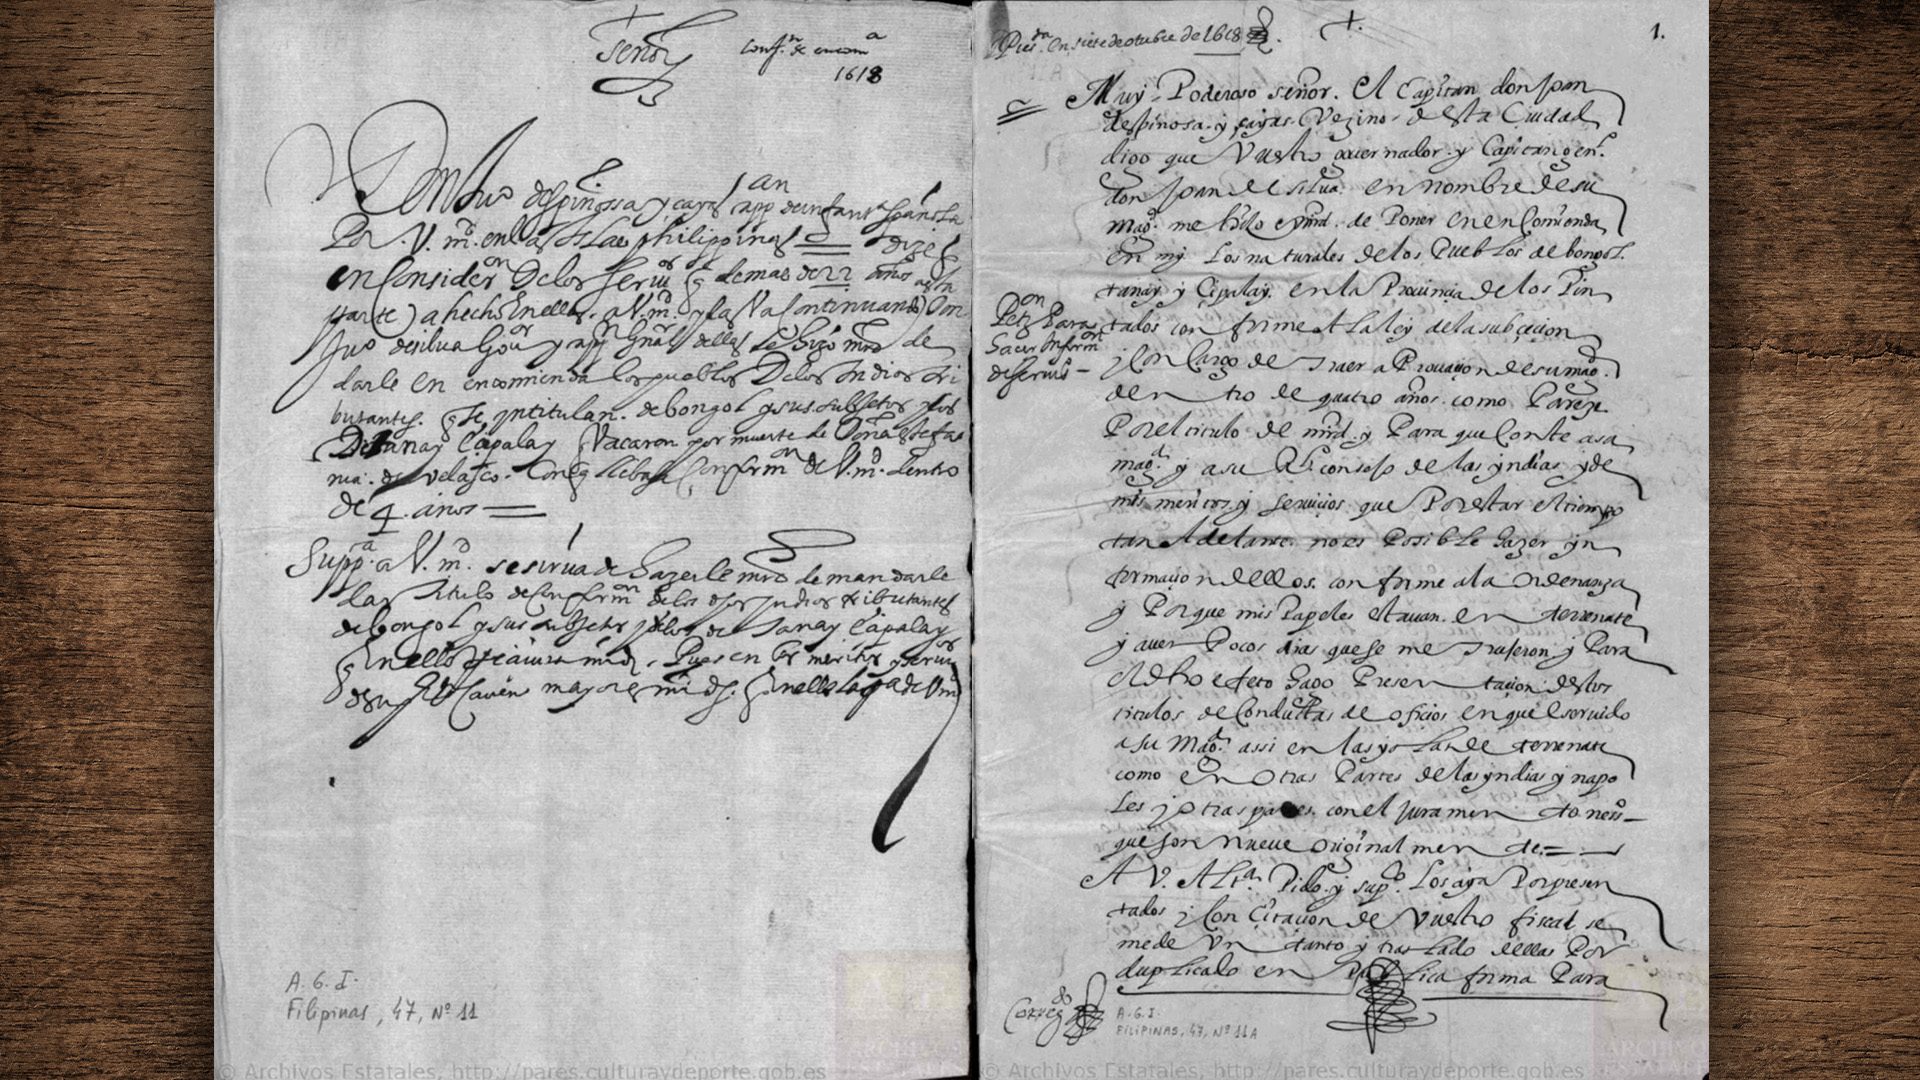 Señor
Conf.on de encom.a
1618
Don Ju.o despinossa y cayas cap.an de infant.a española
Por V. m.d en las Islas philippinas = dize q
en Consider.on De los seru.os q de mas de 22 años a esta
parte a hecho En ellas a V. m.d y las Va Continuando Don
Ju.o de silua Gou.or y cap.n Gn̄al dellas le hizo mrd de
darle en encomienda los pueblos De los Indios tri
butantes q Se yntitulan de bongol y sus subjetos y los
De tanay Capalay q Vacaron por muerte de Doña estefa
nia de Velasco Con q llebase Confirm.on de V. m.d Dentro
de 4 años =
Supp.ca a V. m.d se sirua de hazerle mrd de mandarle
dar Titulo de Confirm.on de los dhos Indios tributantes
de bongol y sus subjetos y los de Tanay Capalay
q En ello reciuira mrd. Pues en los meritos y seru.os
de su
A. G. I.
Filipinas, 47, Nº 11
Pres.da En siete de otubre de 1618
1.
Muy Poderoso señor. El Capitan don Joan
despinosa y cayas Vezino desta Ciudad
digo que Vuestro gouernador y Capitan gen.l
don Joan de silua en nombre de su
mag.d me hizo mrd. de Poner en enComienda
en my los naturales de los Pueblos de bongol
tanay y Cipalay en la Prouincia de los Pin
tados conforme A la ley de la subcecion
y Con Cargo de traer aProuacion de su mag.d
dentro de quatro años como Parece
Por el titulo de mrd. y Para que Conste a su
mag.d y a su R.l consejo de las yndias y de
mis meritos y seruicios que Por estar el tiempo
tan Adelante no es Posible hazer yn
formacion dellos conforme a la Ordenanza
y Porque mis Papeles estauan en terrenate
y auer Pocos dias que se me trujeron y Para
el dho efeto hago Presentacion destos
titulos de Conductas de oficios en que e seruido
a su Mag.d assi en las yslas de terrenate
como en Otras Partes de las yndias y napo
les y otras partes con el juramento neses.o
que son nueue originalmente =
A V. Alt.a Pido y sup.co los aya Por presen
tados y Con Citacion de Vuestro fiscal se
me de Vn tanto y traslado dellas Por
duplicado en Publica forma Para
Pet.on Para
hacer Inform.on
de seruis.
Correg.do
A. G. I.
FILIPINAS, 47, Nº 11A
© Archivos Estatales, http://pares.culturaydeporte.gob.es
© Archivos Estatales, http://pares.culturaydeporte.gob.es